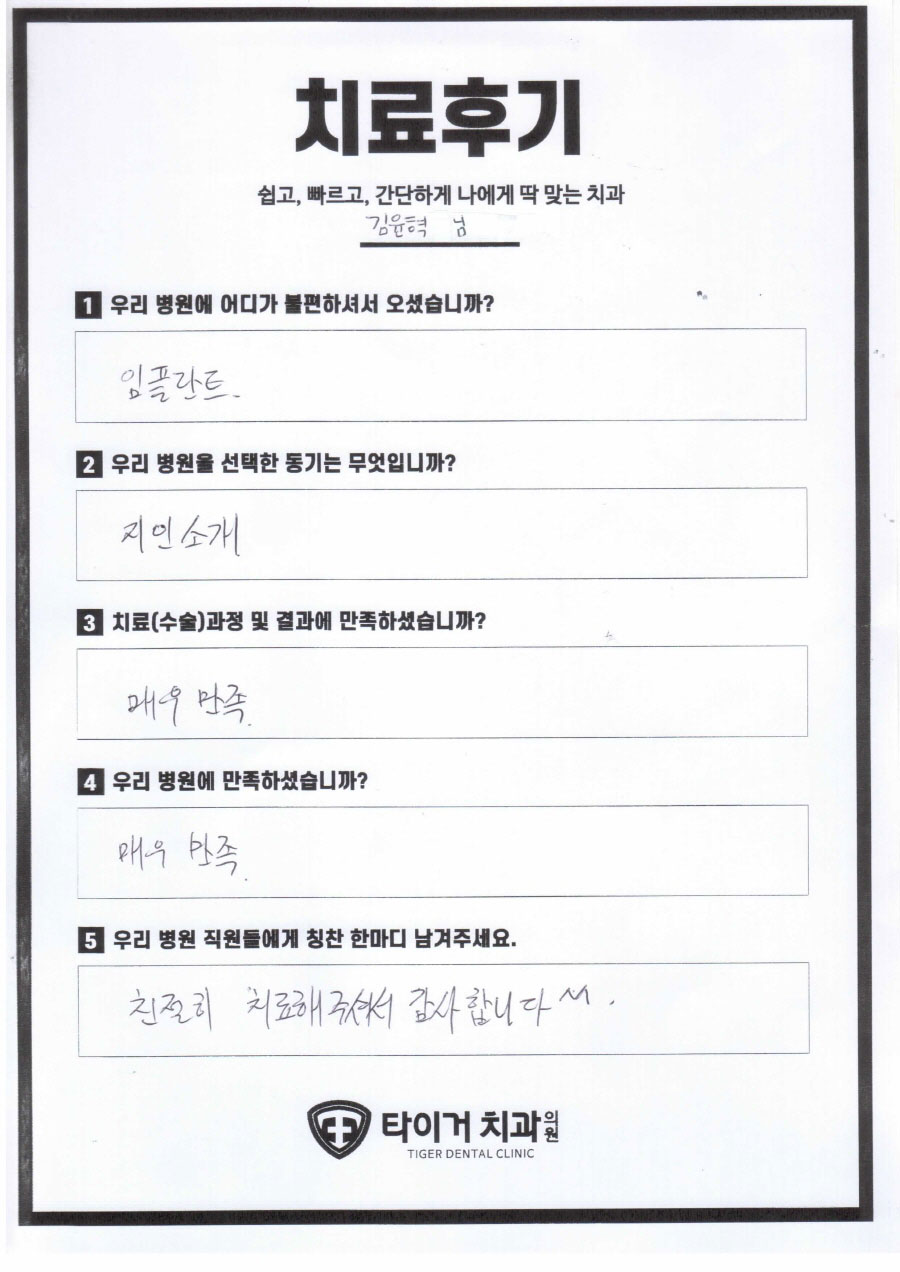 치료후기
쉽고, 빠르고, 간단하게 나에게 딱 맞는 치과
김윤혁 님
1 우리 병원에 어디가 불편하셔서 오셨습니까?
임플란트.
2 우리 병원을 선택한 동기는 무엇입니까?
지인소개
3 치료(수술)과정 및 결과에 만족하셨습니까?
매우 만족.
4 우리 병원에 만족하셨습니까?
매우 만족.
5 우리 병원 직원들에게 칭찬 한마디 남겨주세요.
친절히 치료해주셔서 감사합니다 ^^.
타이거 치과의원
TIGER DENTAL CLINIC